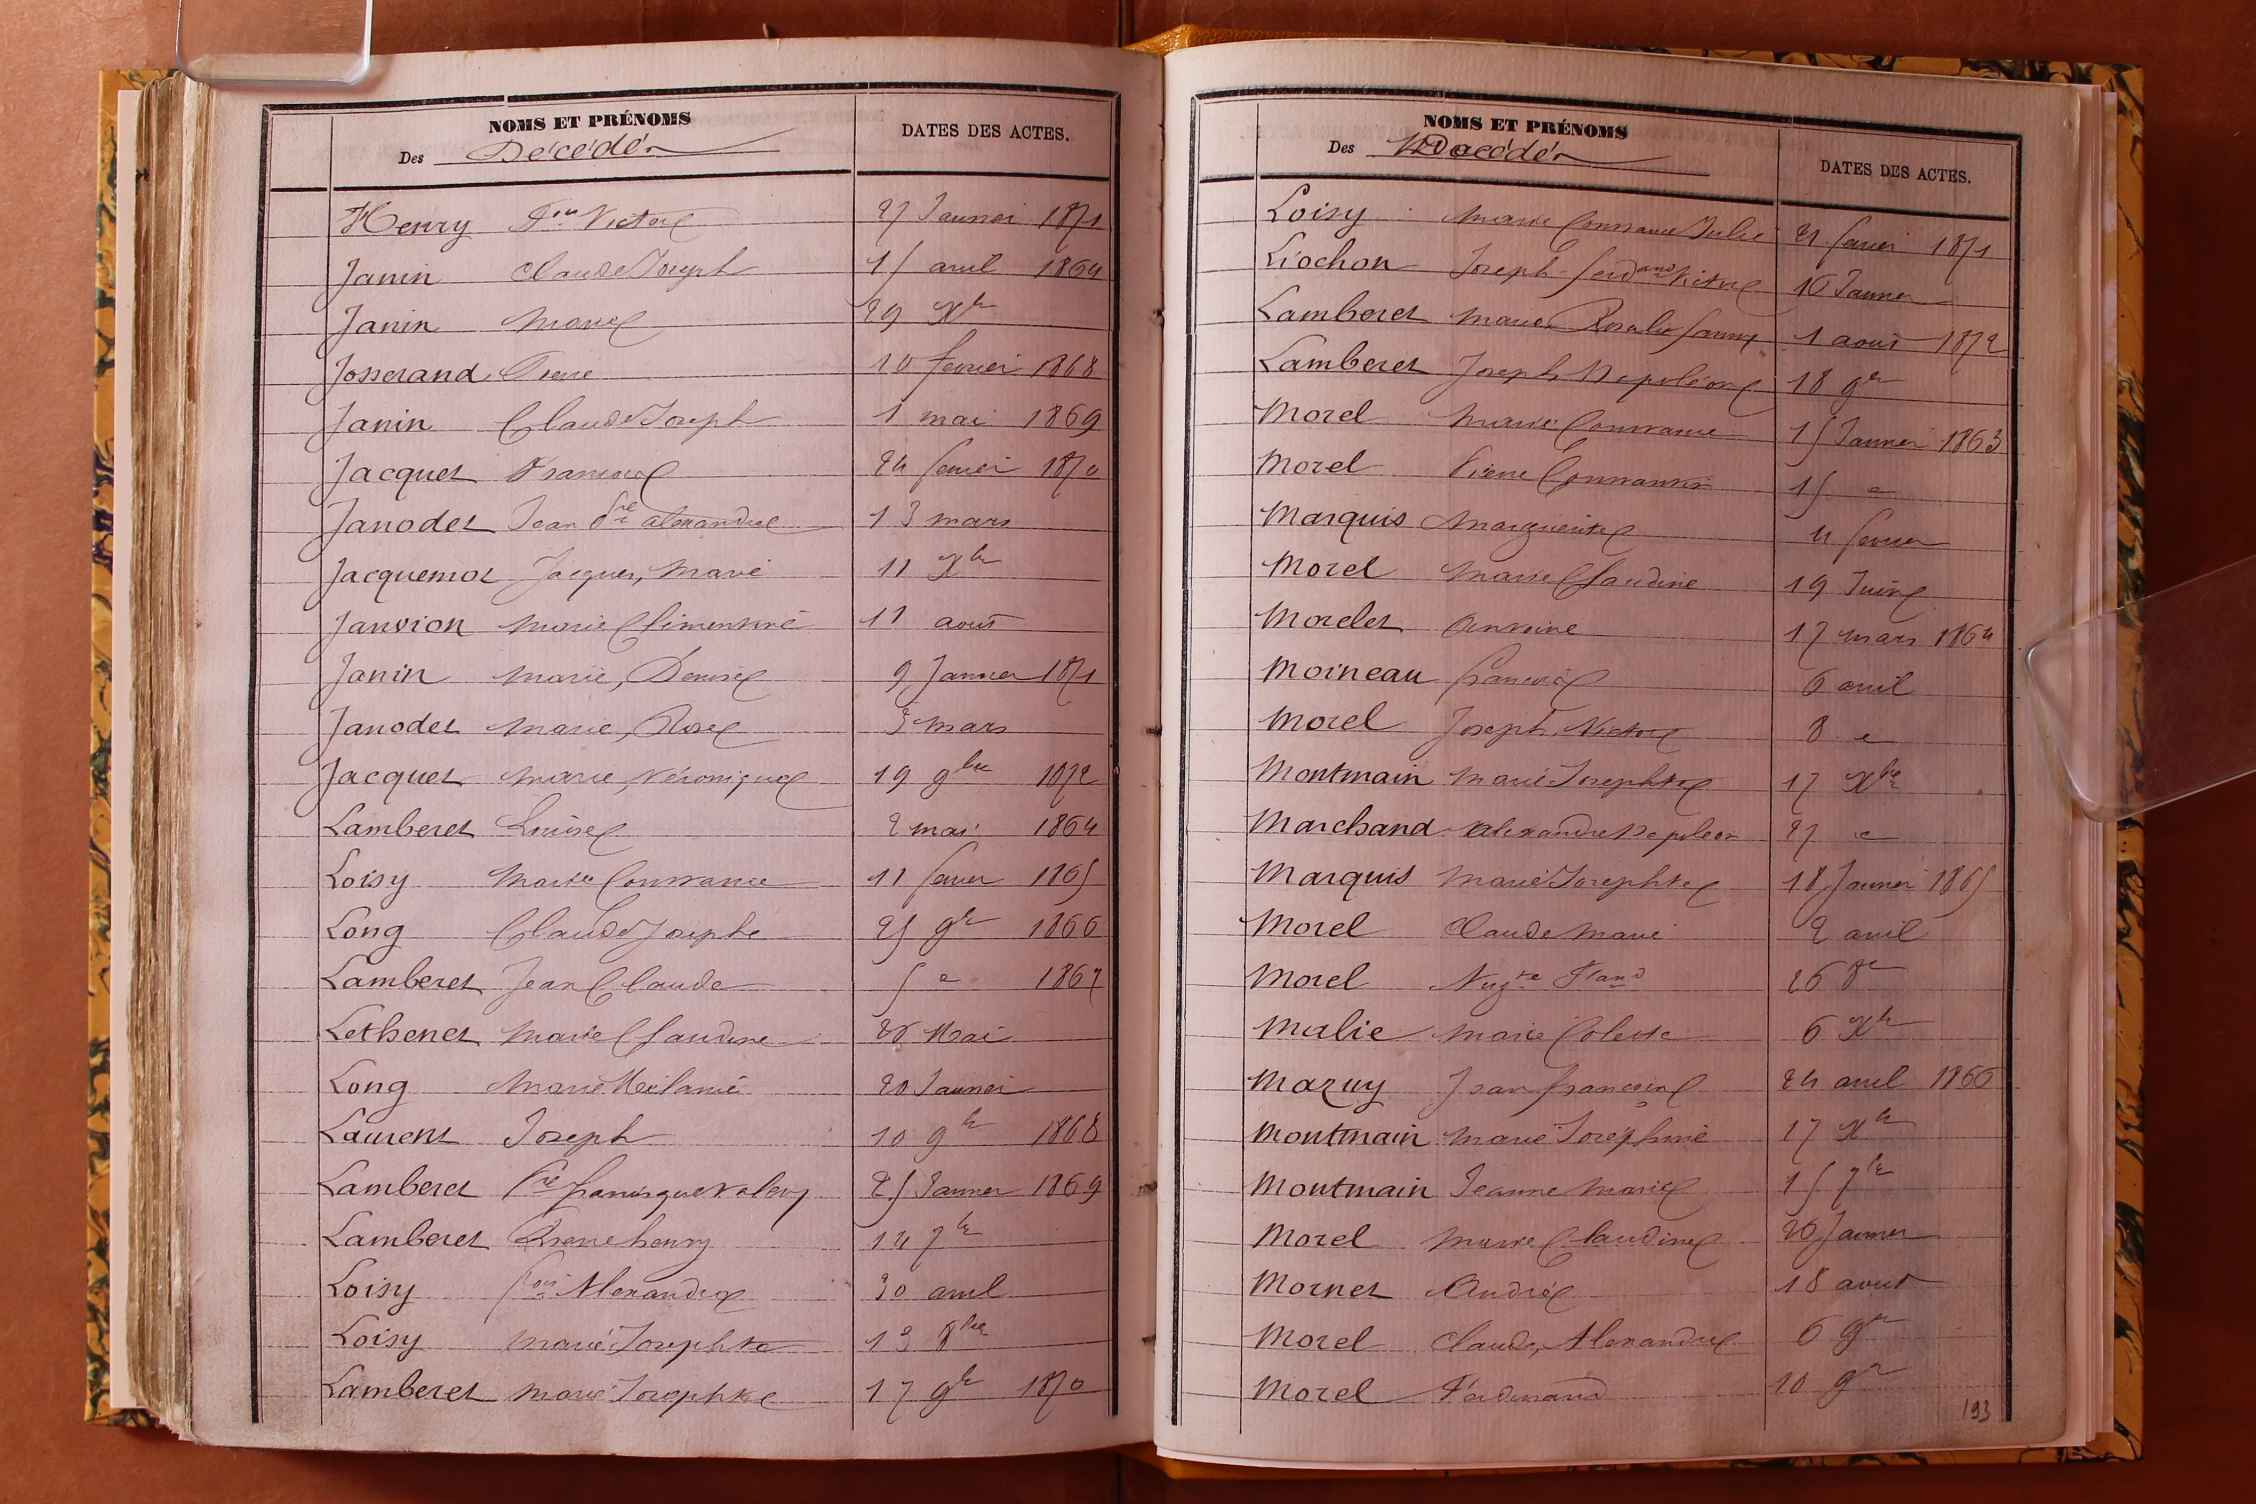 NOMS ET PRÉNOMS
Des Décédés
DATES DES ACTES.
Henry Victor 27 Janvier 1871
Janin Claude Joseph 15 avril 1864
Janin Marie 29 Xbr
Josserand Pierre 10 fevrier 1868
Janin Claude Joseph 1 mai 1869
Jacquet Francois 24 fevrier 1870
Janodet Jean alexandre 13 mars
Jacquemot Jacques, Marie 11 Xbr
Janvion Marie Climentine 11 aout
Janin Marie, Denise 9 Janvier 1871
Janodet Marie, Rose 3 mars
Jacquet Marie, Véronique 19 9bre 1872
Lamberet Louise 2 mai 1864
Loisy Marie Constance 11 fevrier 1865
Long Claude Josephe 25 9br 1866
Lamberet Jean Claude 5 1867
Lethenet Marie Claudine Mai
Long Marie Mélanie 20 Janvier
Laurent Joseph 10 9br 1868
Lamberet francisque valery 25 Janvier 1869
Lamberet Pierre henry 14 7br
Loisy Alexandre 30 avril
Loisy Marie Josephte 13 8bre
Lamberet Marie Josephte 17 9br 1870
NOMS ET PRÉNOMS
Des Décédés
DATES DES ACTES.
Loisy Marie Constance Julie 21 fevrier 1871
Liochon Joseph ferdand Victor 16 Janvier
Lamberet Marie Rosalie fanny 1 aout 1872
Lamberet Joseph Napoléon 18 9br
Morel Marie Constance 15 Janvier 1863
Morel Pierre Constantin 15
Marquis Marguerite 4 fevrier
Morel Marie Claudine 19 Juin
Morelet Antoine 17 mars 1864
Moineau francois 6 avril
Morel Joseph, Victor 8
Montmain Marie Josephte 17 Xbre
Marchand Alexandre Napoléon 27
Marquis Marie Josephte 18 Janvier 1865
Morel Claude Marie 2 avril
Morel 26 8br
Malie Marie Colette 6 Xbr
Mazuy Jean francois 24 avril 1866
Montmain Marie Joséphine 17 Xbr
Montmain Jeanne Marie 15 7br
Morel Marie Claudine 26 Janvier
Mornet André 18 aout
Morel Claude, Alexandre 6 9br
Morel Ferdinand 10 9br
193